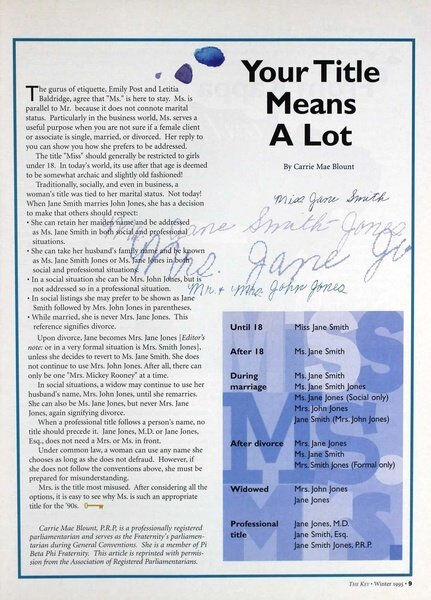 Your Title
Means
A Lot
By Carrie Mae Blount
The gurus of etiquette, Emily Post and Letitia
Baldridge, agree that "Ms." is here to stay. Ms. is
parallel to Mr. because it does not connote marital
status. Particularly in the business world, Ms. serves a
useful purpose when you are not sure if a female client
or associate is single, married, or divorced. Her reply to
you can show you how she prefers to be addressed.
The title "Miss" should generally be restricted to girls
under 18. In today's world, its use after that age is deemed
to be somewhat archaic and slightly old fashioned!
Traditionally, socially, and even in business, a
woman's title was tied to her marital status. Not today!
When Jane Smith marries John Jones, she has a decision
to make that others should respect:
• She can retain her maiden name and be addressed
as Ms. Jane Smith in both social and professional
situations.
• She can take her husband's family name and be known
as Ms. Jane Smith Jones or Ms. Jane Jones in both
social and professional situations.
• In a social situation she can be Mrs. John Jones, but is
not addressed so in a professional situation.
• In social listings she may prefer to be shown as Jane
Smith followed by Mrs. John Jones in parentheses.
• While married, she is never Mrs. Jane Jones. This
reference signifies divorce.
Upon divorce, Jane becomes Mrs. Jane Jones [Editor's
note: or in a very formal situation is Mrs. Smith Jones],
unless she decides to revert to Ms. Jane Smith. She does
not continue to use Mrs. John Jones. After all, there can
only be one "Mrs. Mickey Rooney" at a time.
In social situations, a widow may continue to use her
husband's name, Mrs. John Jones, until she remarries.
She can also be Ms. Jane Jones, but never Mrs. Jane
Jones, again signifying divorce.
When a professional title follows a person's name, no
title should precede it. Jane Jones, M.D. or Jane Jones,
Esq., does not need a Mrs. or Ms. in front.
Under common law, a woman can use any name she
chooses as long as she does not defraud. However, if
she does not follow the conventions above, she must be
prepared for misunderstanding.
Mrs. is the title most misused. After considering all the
options, it is easy to see why Ms. is such an appropriate
title for the '90s.
Carrie Mae Blount, P.R.P, is a professionally registered
parliamentarian and serves as the Fraternity's parliamen-
tarian during General Conventions. She is a member of Pi
Beta Phi Fraternity. This article is reprinted with permis-
sion from the Association of Registered Parliamentarians.
Miss Jane Smith
Jane Smith-Jones
Mrs. Jane
Mr. & Mrs. John Jones
MISS
MS.
MRS.
Until 18 Miss Jane Smith
After 18 Ms. Jane Smith
During Ms. Jane Smith
marriage Ms. Jane Smith Jones
Ms. Jane Jones (Social only)
Mrs. John Jones
Jane Smith (Mrs. John Jones)
After divorce Mrs. Jane Jones
Ms. Jane Smith
Mrs. Smith Jones (Formal only)
Widowed Mrs. John Jones
Jane Jones
Professional Jane Jones, M.D.
title Jane Smith, Esq.
Jane Smith Jones, P.R.P.
THE KEY • Winter 1995 • 9